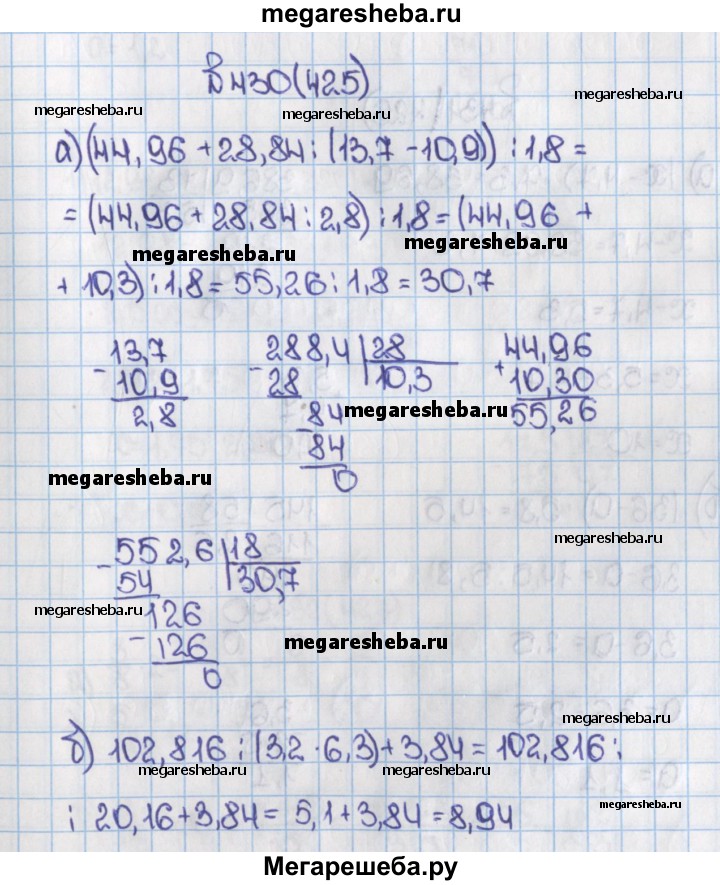 megaresheba.ru
В 430(425)
megaresheba.ru
megaresheba.ru
а) (44,96 + 28,84 : (13,7 - 10,9)) : 1,8 =
= (44,96 + 28,84 : 2,8) : 1,8 = (44,96 +
megaresheba.ru
megaresheba.ru
+ 10,3) : 1,8 = 55,26 : 1,8 = 30,7
13,7 288,4 | 28 44,96
- 10,9 - 28 10,3 + 10,30
2,8 - 84 megaresheba.ru 55,26
84
megaresheba.ru 0
megaresheba.ru
- 552,6 | 18
54 30,7
megaresheba.ru 126
- 126 megaresheba.ru
0
megaresheba.ru
б) 102,816 : (3,2 · 6,3) + 3,84 = 102,816 :
megaresheba.ru megaresheba.ru
megaresheba.ru
: 20,16 + 3,84 = 5,1 + 3,84 = 8,94
Мегарешеба.ру